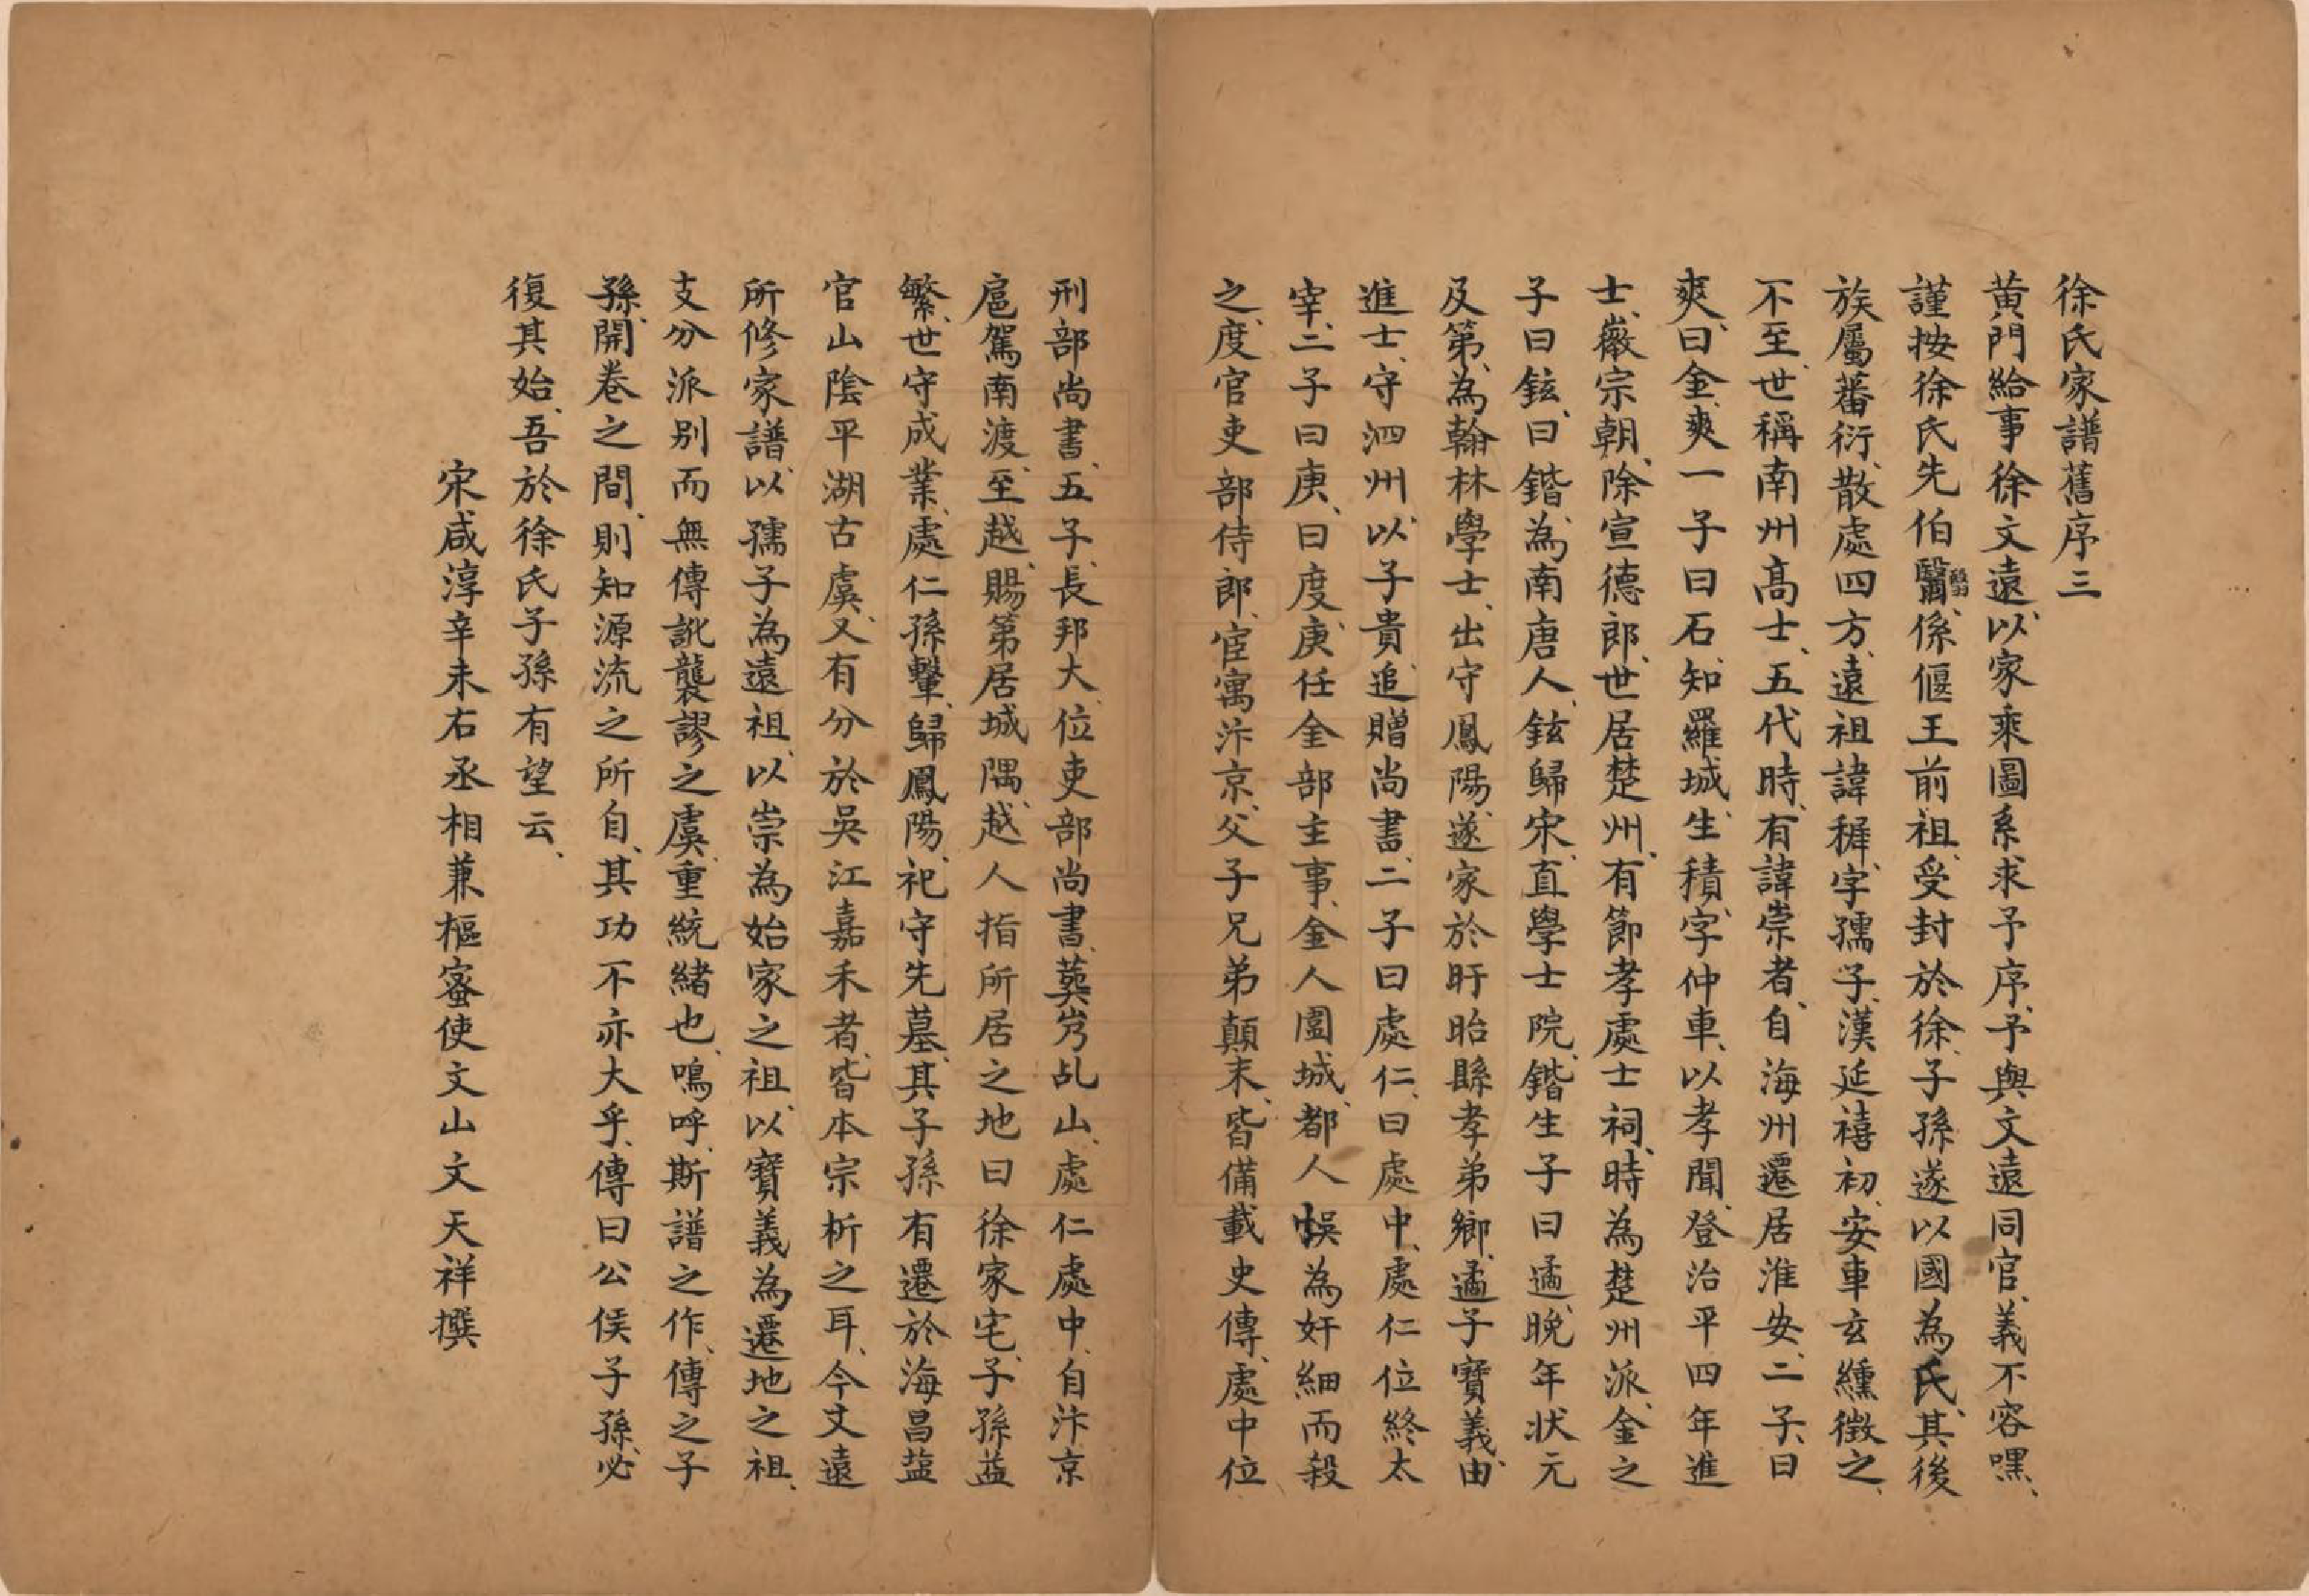 徐氏家譜舊序三
黃門給事徐文遠、以家乘圖系求予序、予與文遠同官、義不容嘿、
謹按徐氏先伯翳係偃王前祖、受封於徐、子孫遂以國為氏、其後
族屬蕃衍、散處四方、遠祖諱穉、字孺子、漢延禧初、安車玄纁徵之、
不至、世稱南州高士、五代時、有諱崇者、自海州遷居淮安、二子、曰
爽、曰金、爽一子曰石、知羅城生積、字仲車、以孝聞、登治平四年進
士、徽宗朝、除宣德郎、世居楚州、有節孝處士祠、時為楚州派、金之
子曰鉉、曰鍇、為南唐人、鉉歸宋、直學士院、鍇生子曰遹、晚年状元
及第、為翰林學士、出守鳳陽、遂家於盱眙縣孝弟鄉、遹子寶義、由
進士、守泗州、以子貴、追贈尚書、二子曰處仁、曰處中、處仁位終太
宰、二子曰庚、曰度、庚任金部主事、金人圍城、都人悞為奸細而殺
之、度官吏部侍郎、宦寓汴京、父子兄弟顛末、皆備載史傳、處中位
刑部尚書、五子、長邦大、位吏部尚書、葬屴乩山、處仁處中、自汴京
扈駕南渡、至越、賜第居城隅、越人指所居之地曰徐家宅、子孫益
繁、世守成業、處仁孫輦、歸鳳陽、祀守先墓、其子孫有遷於海昌塩
官山陰平湖古虞、又有分於吳江嘉禾者、皆本宗析之耳、今文遠
所修家譜、以孺子為遠祖、以崇為始家之祖、以寶義為遷地之祖、
支分派別而無傳訛襲謬之虞、重統緒也、鳴呼、斯譜之作、傳之子
孫、開卷之間、則知源流之所自、其功不亦大乎、傳曰公侯子孫、必
復其始、吾於徐氏子孫有望云、
宋咸淳辛未右丞相兼樞密使文山文天祥撰